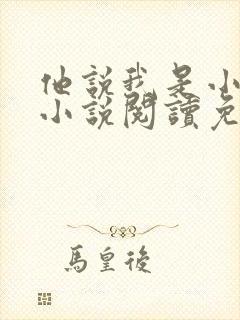 他說我是小
小說閱讀免
馬皇後